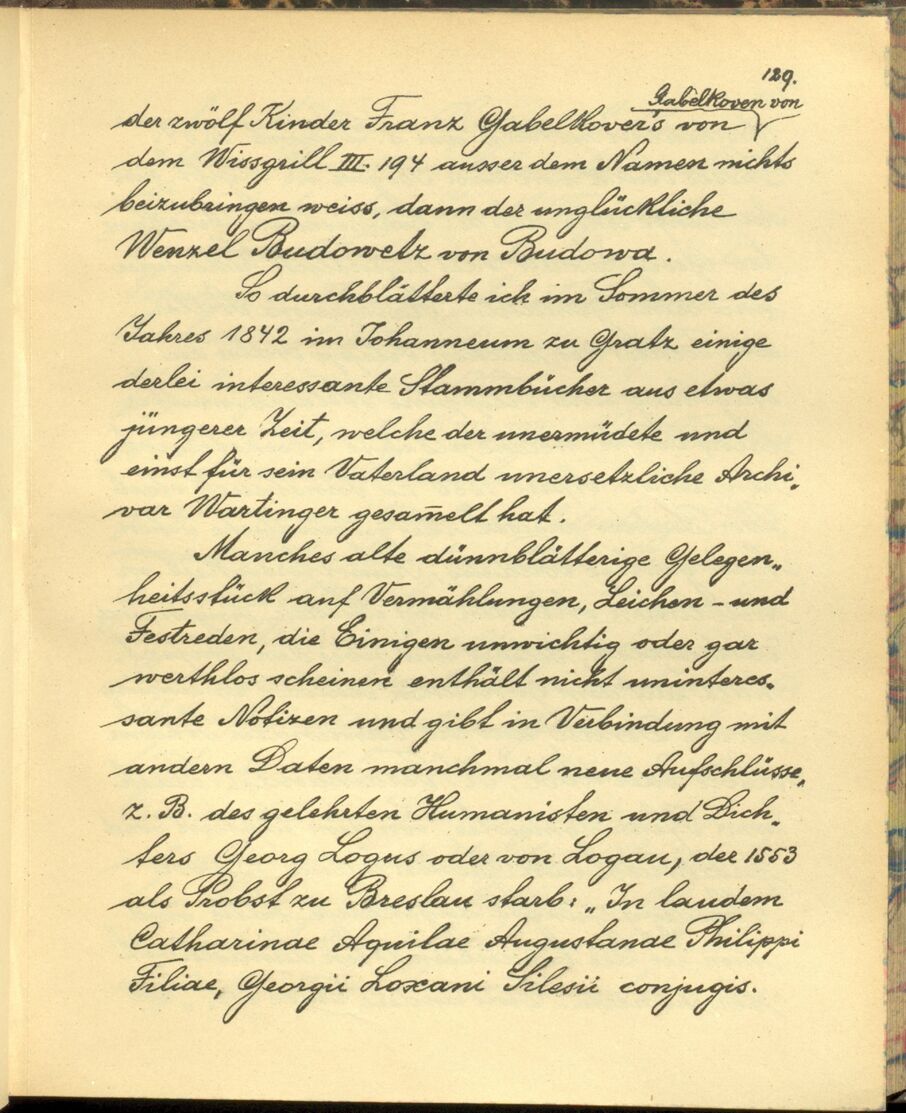 129.
Gabelkoven von
der zwölf Kinder Franz Gabelkover's von
dem Wissgrill III. 194 ausser dem Namen nichts
beizubringen weiss, dann der unglückliche
Wenzel Budowetz von Budowa.
So durchblätterte ich im Sommer des
Jahres 1842 im Johanneum zu Gratz einige
derlei interessante Stammbücher aus etwas
jüngerer Zeit, welche der unermüdete und
einst für sein Vaterland unersetzliche Archi„
var Wartinger gesam̄elt hat.
Manches alte dünnblätterige Gelegen„
heitsstück auf Vermählungen, Leichen- und
Festreden, die Einigen unwichtig oder gar
werthlos scheinen enthält nicht uninteres„
sante Notizen und gibt in Verbindung mit
andern Daten manchmal neue Aufschlüsse,
z. B. des gelehrten Humanisten und Dich„
ters Georg Logus oder von Logau, der 1553
als Probst zu Breslau starb: „In laudem
Catharinae Aquilae Augustanae Philippi
Filiae, Georgii Loxani Silesii conjugis.